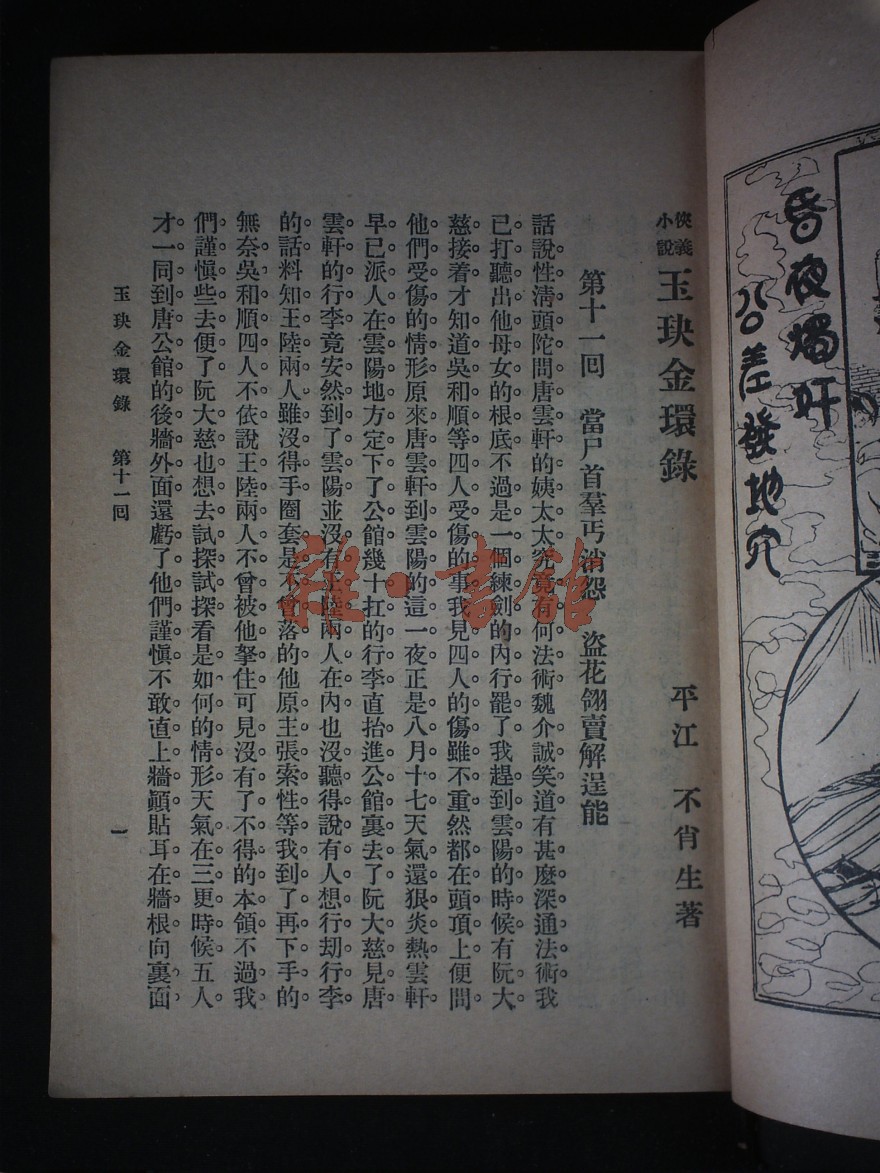 昏夜燭奸
公差發地穴
俠義小說 玉玦金環錄 平江 不肖生著
第十一回 當尸首羣丐洩怨 盜花翎賣解逞能
話說性清頭陀問唐雲軒的姨太太究竟有何法術魏介誠笑道有甚麽深通法術我
已打聽出他母女的根底不過是一個練劍的內行罷了我趕到雲陽的時候有阮大
慈接着才知道吳和順等四人受傷的事我見四人的傷雖不重然都在頭頂上便問
他們受傷的情形原來唐雲軒到雲陽的這一夜正是八月十七天氣還狠炎熱雲軒
早已派人在雲陽地方定下了公館幾十扛的行李直抬進公館裏去了阮大慈見唐
雲軒的行李竟安然到了雲陽並沒有王陸兩人在內也沒聽得說有人想行刦行李
的話料知王陸兩人雖沒得手圈套是不曾落的他原主張索性等我到了再下手的
無奈吳和順四人不依說王陸兩人不曾被他拏住可見沒有了不得的本領不過我
們謹慎些去便了阮大慈也想去試探試探看是如何的情形天氣在三更時候五人
才一同到唐公館的後牆外面還虧了他們謹慎不敢直上牆顚貼耳在牆根向裏面
玉玦金環錄 第十一回 一
雜·書館